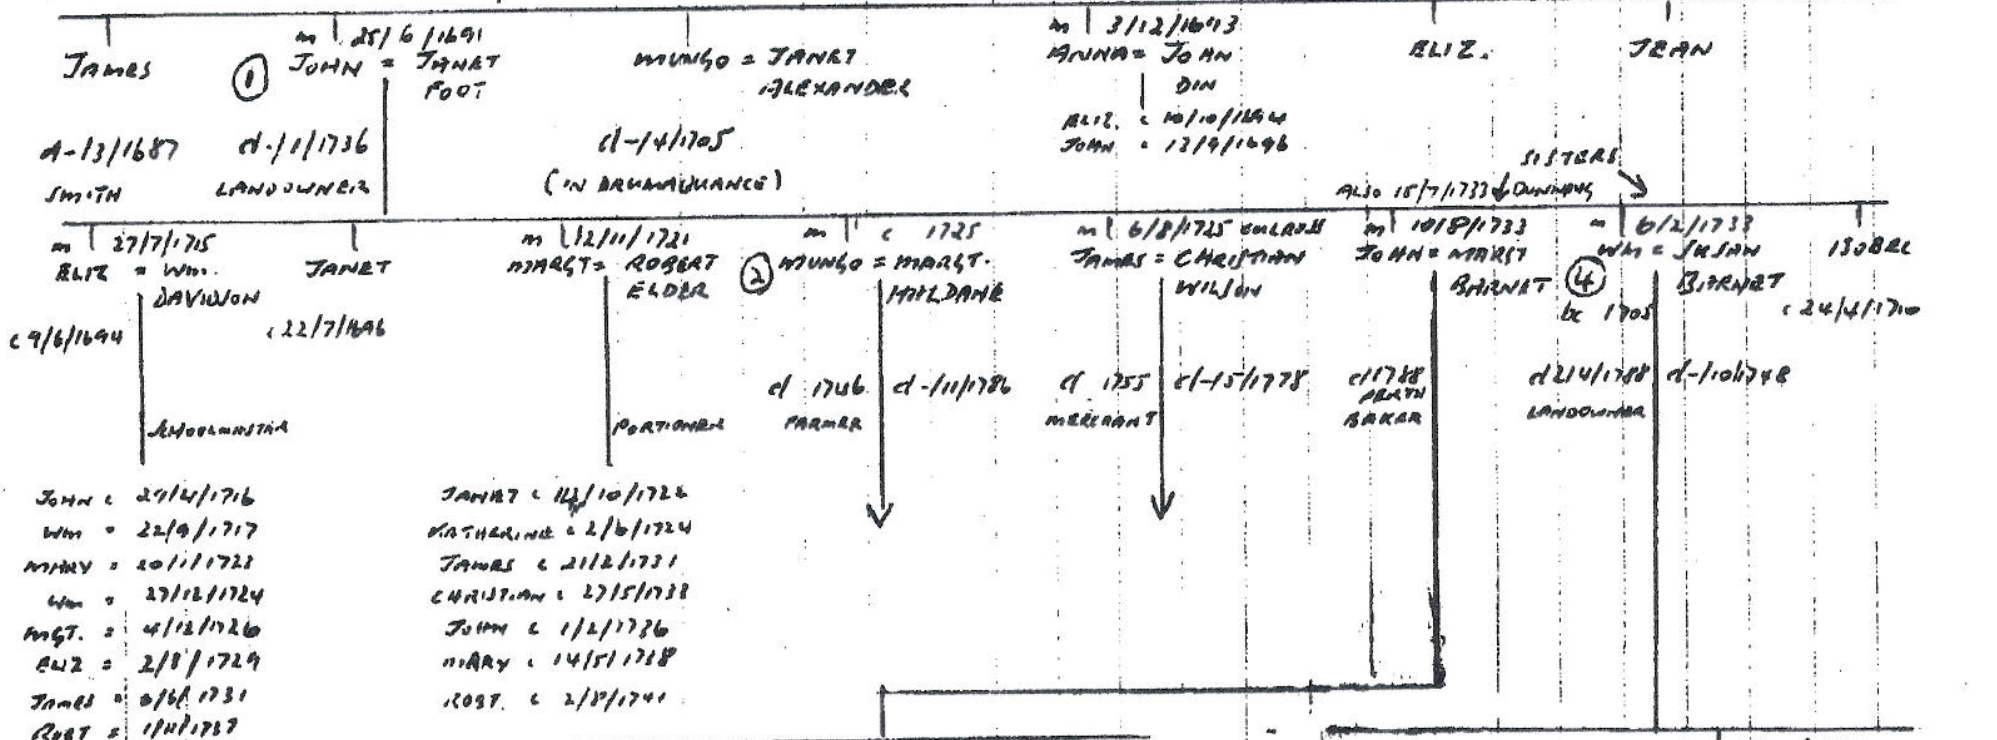 JAMES
d-/3/1687
SMITH
①
m 25/6/1691
JOHN = JANET
FOOT
d-/1/1736
LANDOWNER
MUNGO = JANET
ALEXANDER
d-/4/1705
(IN DRUMQUHANCE)
m 3/12/1693
ANNA = JOHN
DIN
ELIZ. c 10/10/1694
JOHN c 13/9/1696
ELIZ.
JEAN
SISTERS
ALSO 15/7/1733 DUNNING
m 27/7/1715
ELIZ = WM.
DAVIDSON
c 9/6/1694
SCHOOLMASTER
JANET
c 22/7/1696
m 12/11/1721
MARGT = ROBERT
ELDER
PORTIONER
②
m c 1725
MUNGO = MARGT.
HALDANE
d 1746 d-/11/1786
FARMER
m 6/8/1725 CULROSS
JAMES = CHRISTIAN
WILSON
d 1755 d-/5/1778
MERCHANT
m 10/8/1733
JOHN = MARGT
BARNET
d 1788
PERTH
BAKER
④
m 6/2/1733
WM = SUSAN
BARNET
bc 1705
d 2/4/1788 d-/10/1748
LANDOWNER
ISOBEL
c 24/4/1710
JOHN c 27/4/1716
WM = 22/9/1717
MARY = 20/1/1723
WM = 27/12/1724
MGT. = 4/12/1726
ELIZ = 2/8/1729
JAMES = /6/1731
ROBT = 1/11/1737
JANET c /10/1722
KATHERINE c 2/6/1724
JAMES c 21/2/1731
CHRISTIAN c 27/5/1733
JOHN c 1/2/1736
MARY c 14/5/1738
ROBT. c 2/8/1741